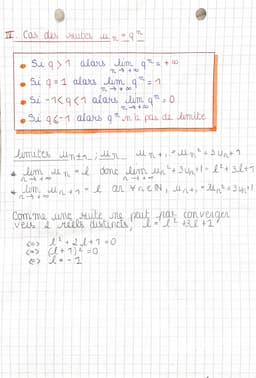 II. Cas des suites uₙ = qⁿ
• Si q > 1 alors lim qⁿ = +∞
n→+∞
• Si q = 1 alors lim qⁿ = 1
n→+∞
• Si -1<q<1 alors lim qⁿ = 0
n→+∞
• Si q≤-1 alors qⁿ n'a pas de limite
limites uₙ₊₁ ; uₙ uₙ₊₁ = uₙ² + 3uₙ + 1
lim uₙ = l donc lim uₙ² + 3uₙ + 1 = l² + 3l + 1
n→+∞ n→+∞
lim uₙ₊₁ = l or ∀n∈ℕ, uₙ₊₁ = uₙ² + 3uₙ + 1
n→+∞
Comme une suite ne peut pas converger
vers 2 réels distincts, l = l² + 3l + 1
<=> l² + 2l + 1 = 0
<=> (l + 1)² = 0
<=> l = -1